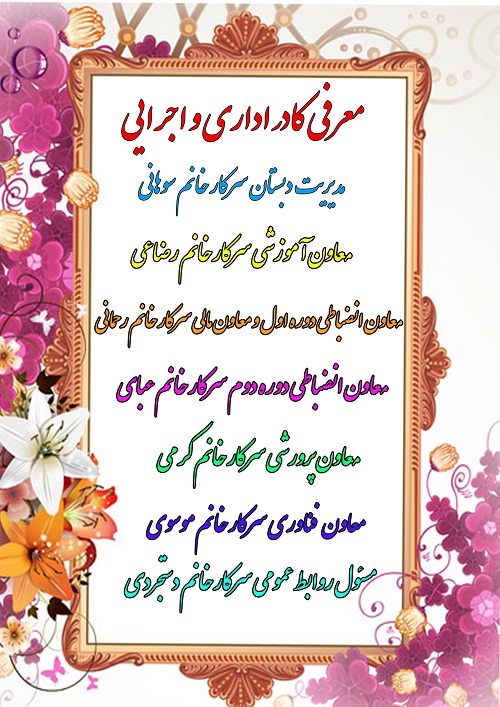 معرفی کادر اداری و اجرایی
مدیریت دبستان سرکار خانم سوهانی
معاون آموزشی سرکار خانم رضاعی
معاون انضباطی دوره اول و معاون مالی سرکار خانم رحمانی
معاون انضباطی دوره دوم سرکار خانم عبای
معاون پرورشی سرکار خانم کرمی
معاون فناوری سرکار خانم موسوی
مسئول روابط عمومی سرکار خانم دستجردی